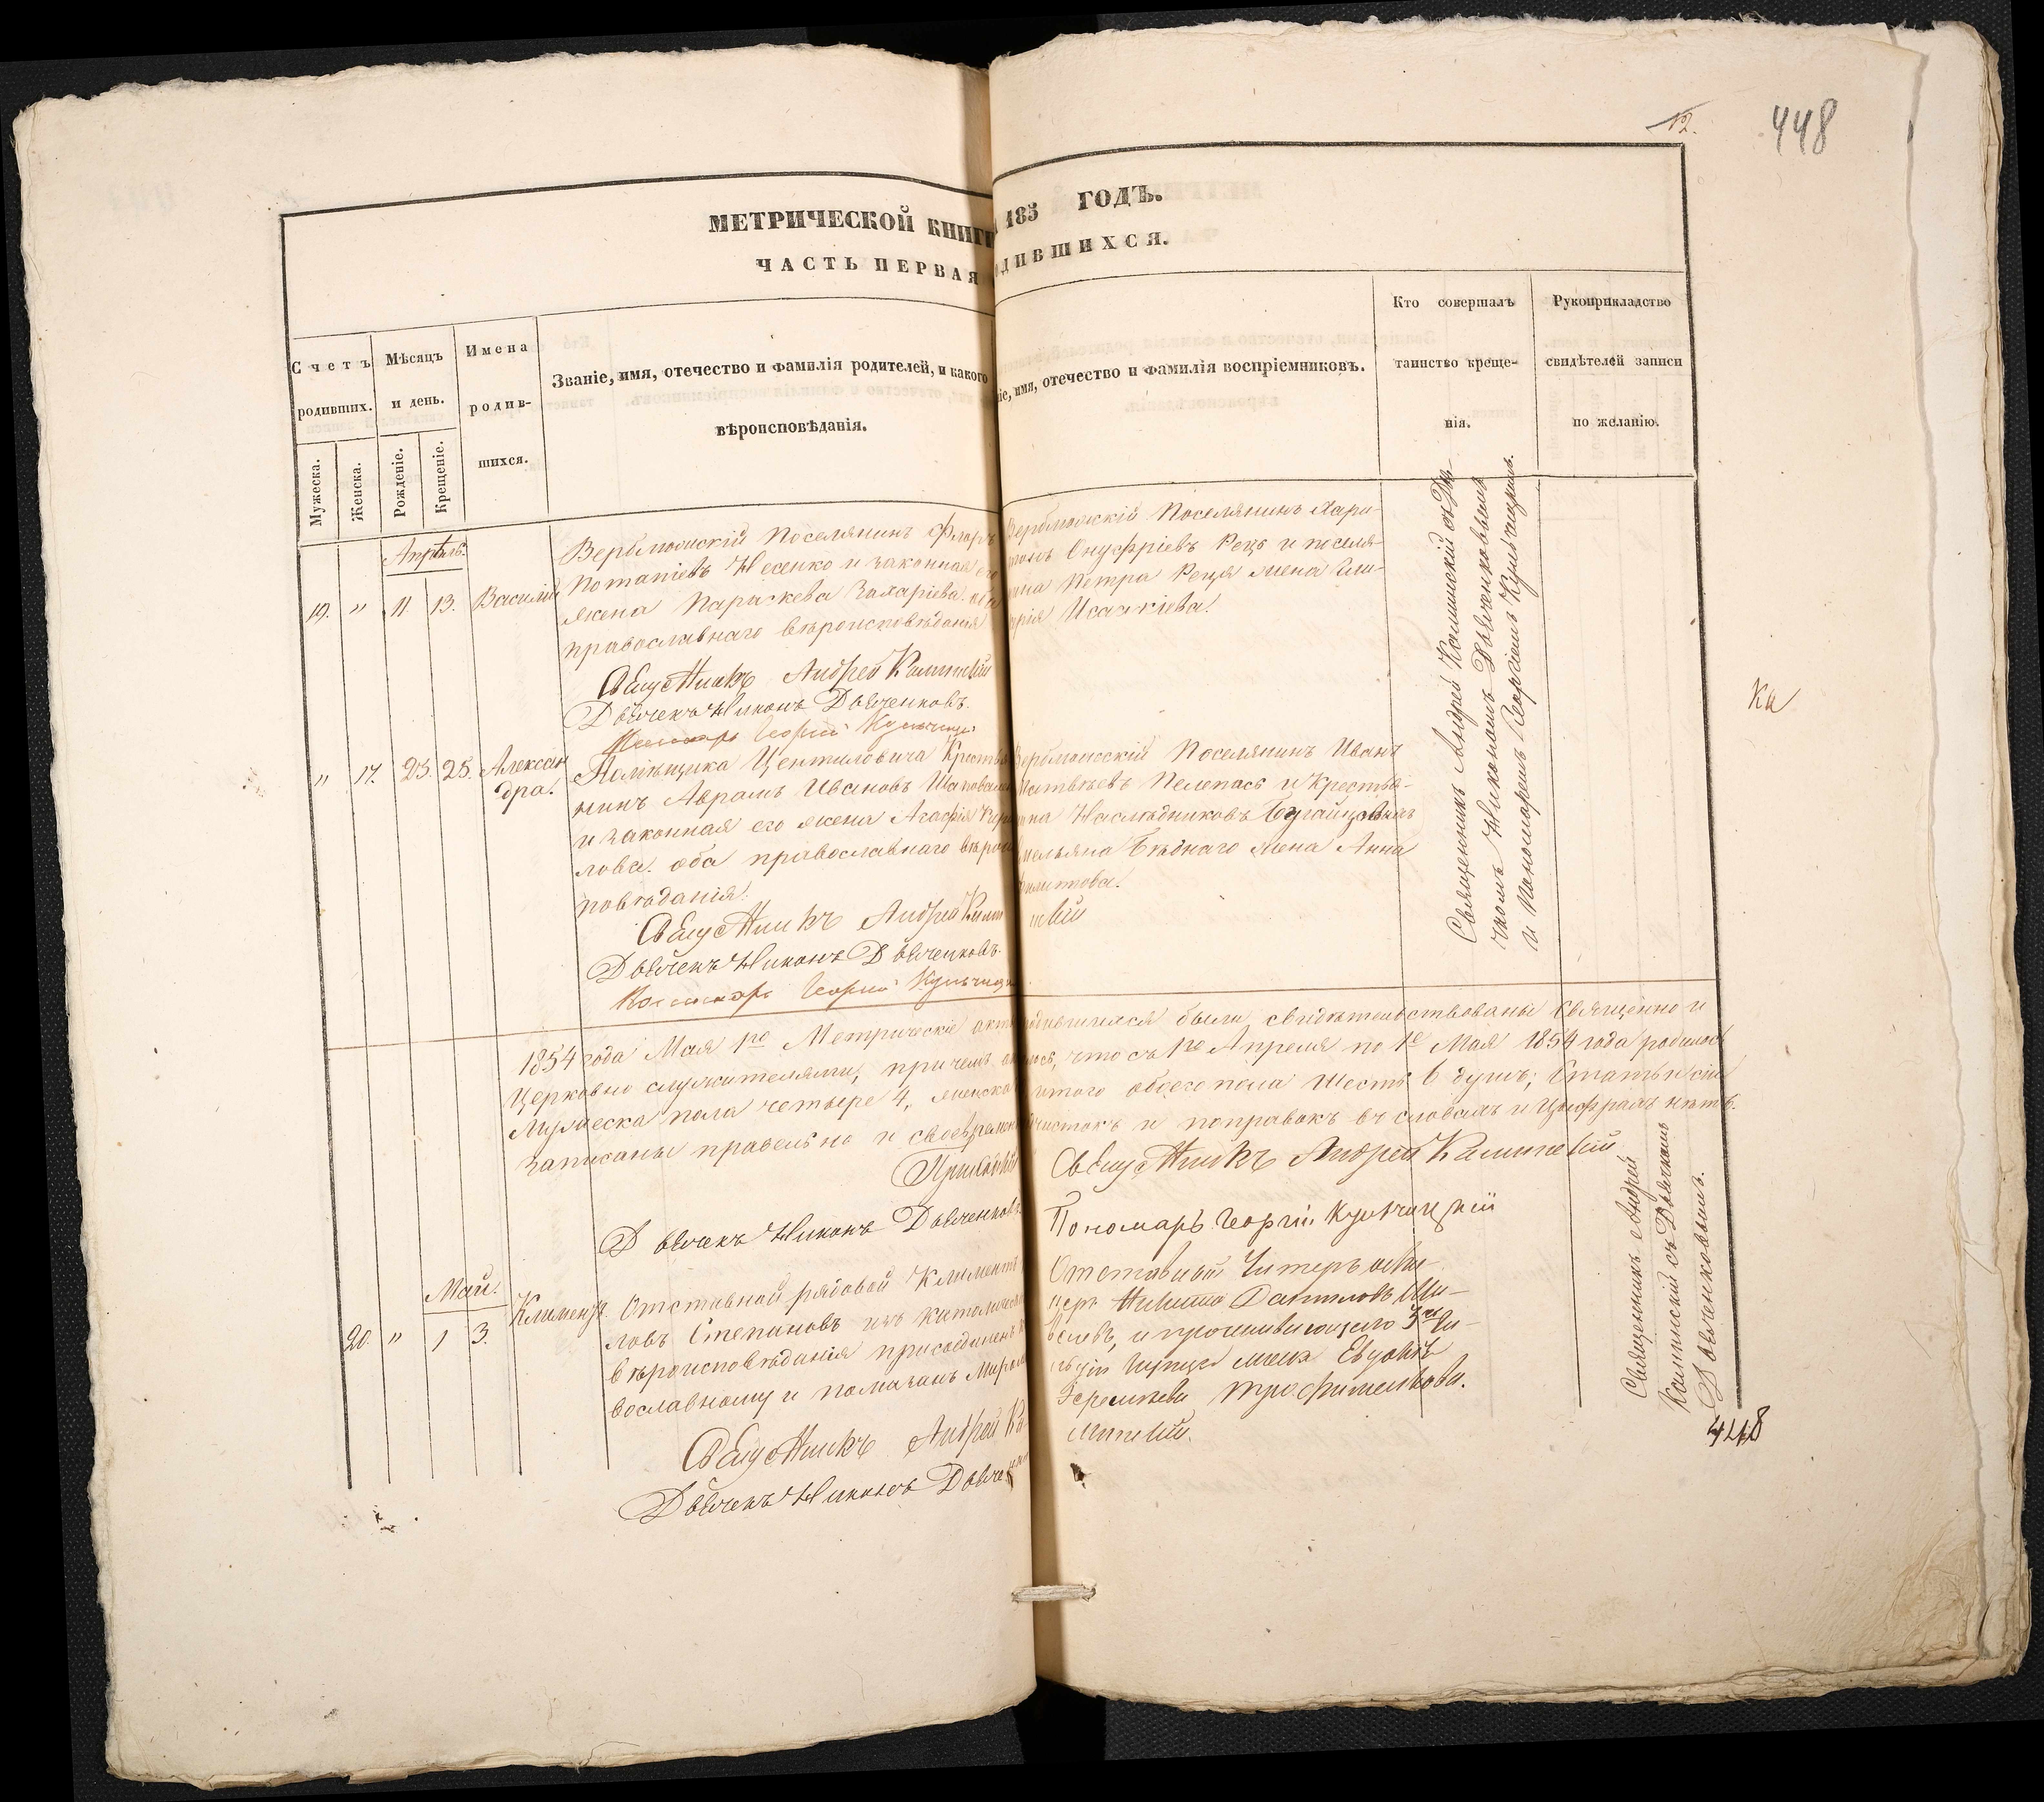 12.
448
МЕТРИЧЕСКОЙ КНИГИ
185 ГОДЪ.
ЧАСТЬ ПЕРВАЯ
ДИВШИХСЯ.
Счетъ родивших.
Мужеска.
Женска.
Мѣсяцъ и день.
Рожденіе.
Крещеніе.
Имена родив-
шихся.
Званіе, имя, отечество и фамилія родителей, и какого
вѣроисповѣданія.
іе, имя, отечество и фамилія воспріемниковъ.
Кто совершалъ
таинство креще-
нія.
Рукоприкладство
свидѣтелей записи
по желанію.
Апрѣль.
19. " 11. 13. Василій
поселянинъ Флоръ
Потапіевъ Несенко и законная его
жена Параскева Захаріева. оба
православнаго вѣроисповѣданія
Священникъ Андрей Калинскій
Дьячекъ Никонъ Дьяченковъ.
Пономарь Георгій
поселянинъ Хари-
тонъ Онуфріевъ Рецъ и поселя-
нина Петра Реця жена
Исакіева.
Священникъ Андрей Калинскій съ Дья-
чкомъ Никономъ Дьяченковымъ
и Пономаремъ Георгіемъ Кульчицкимъ.
" 17. 23. 25. Александра.
Помѣщика Центиловича Крестья
нинъ Аврамъ Ивановъ Шаповалъ
и законная его жена Агафія Кири
лова. оба православнаго вѣроис
повѣданія.
Священникъ Андрей Калин
скій
Дьячекъ Никонъ Дьяченковъ.
Пономарь Георгій Кульчицкій
Поселянинъ Иванъ
Матвѣевъ Пелепасъ и крестья-
нина Наслѣдниковъ
Емельяна Бѣднаго жена Анна
Филипова.
Ка
1854 года Мая 1го Метрическіе акты родившихся были свидѣтельствованы Священно и
Церковно служителями, при чемъ оказалось, что съ 1го Апреля по 1е Мая 1854 года родилось
Мужеска пола четыре 4, женска итого обоего пола шесть 6 душъ; Статьи сіи
записаны правельно и своевременно чистокъ и поправокъ въ словахъ и Цыфрахъ нѣтъ.
Священникъ Андрей Калинскій
Дьячекъ Никонъ Дьяченковъ
Пономарь Георгій Кульчицкій
Май.
20. " 1 3. Климентъ.
Отставной рядовой Климентъ
ловъ Степановъ изъ католическ
вѣроисповѣданія присоединенъ къ
вославному и помазанъ Миромъ
Священникъ Андрей Ка
линскій.
Дьячекъ Никонъ Дьяче
Отставной Унтеръ офи-
церъ Никита Даниловъ
и проживающаго
жена Евдокія
Трофименкова.
Священникъ Андрей
Калинскій съ Дьячкомъ
Дьяченковымъ.
448